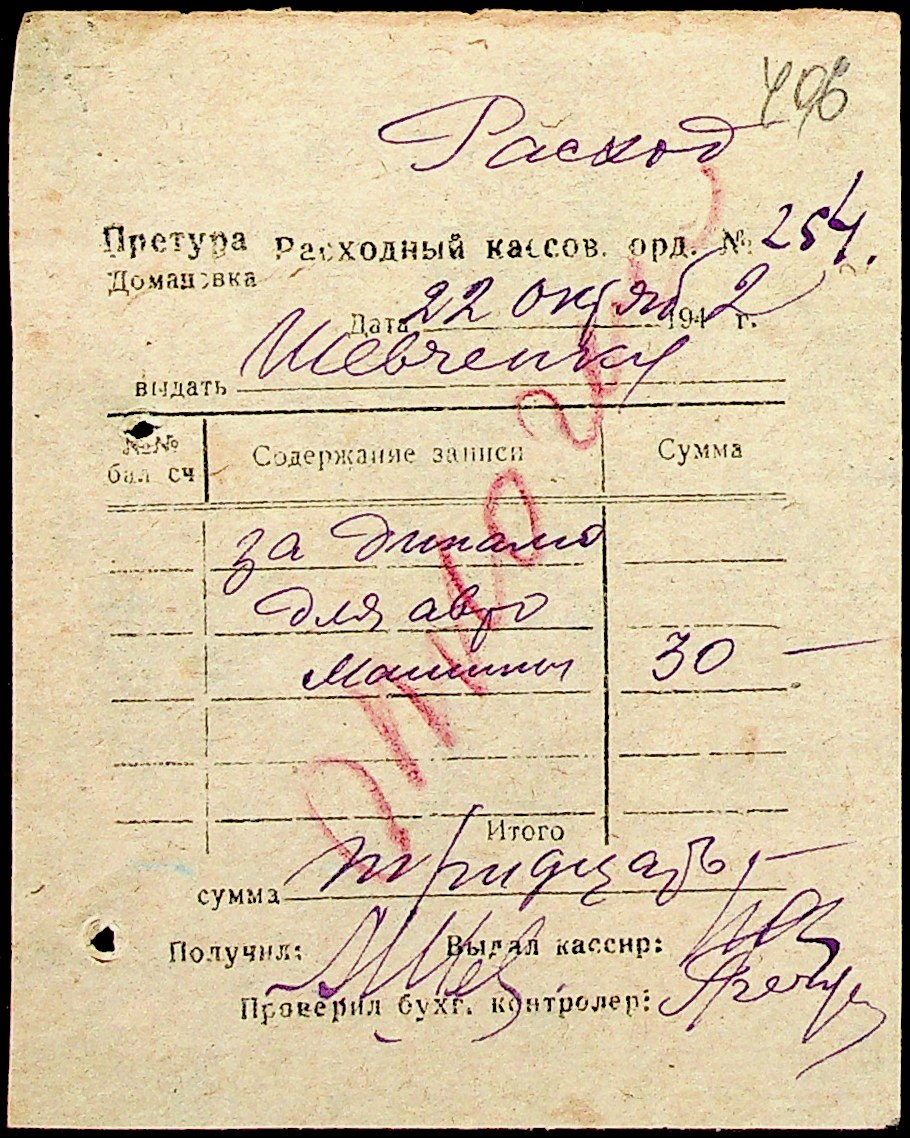 406
Расход
Претура Расходный кассов. орд. № 254.
Домановка
Дата 22 октяб 1942 г.
выдать Шевченку
№№ бал сч Содержание записи Сумма
за динамо
для авто
машины 30 —
Итого
сумма тридцать —
Получил: АШев Выдал кассир:
Проверил бухг. контролер: